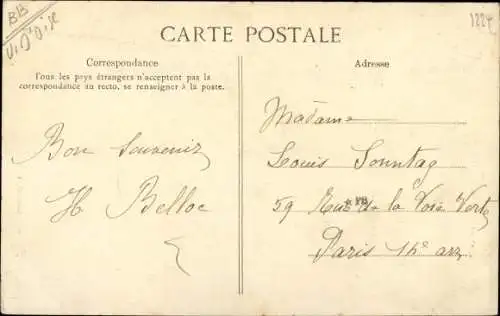 BB
V. D'Oise
122
CARTE POSTALE
Correspondance
Tous les pays étrangers n'acceptent pas la
correspondance au recto, se renseigner à la poste.
Bon Souvenir
H Belloc
Adresse
Madame
Louis Sonntag
59 Rue de la Voie Verte
Paris 14e arr.